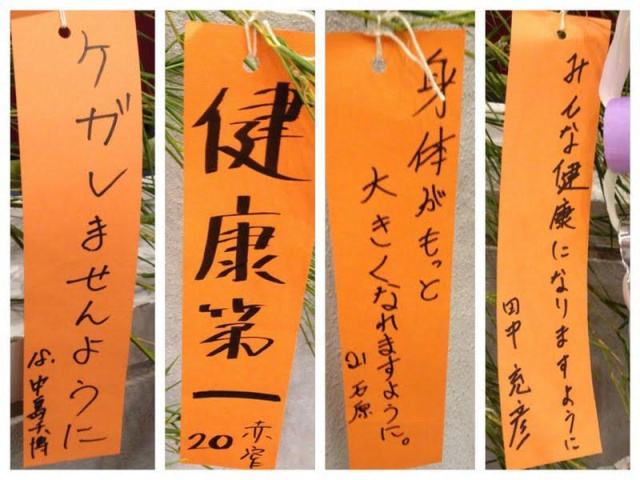 ケガしませんように
18.
健康第一
20
身体がもっと
大きくなれますように。
21 石原
みんな健康になりますように
田中 克彦